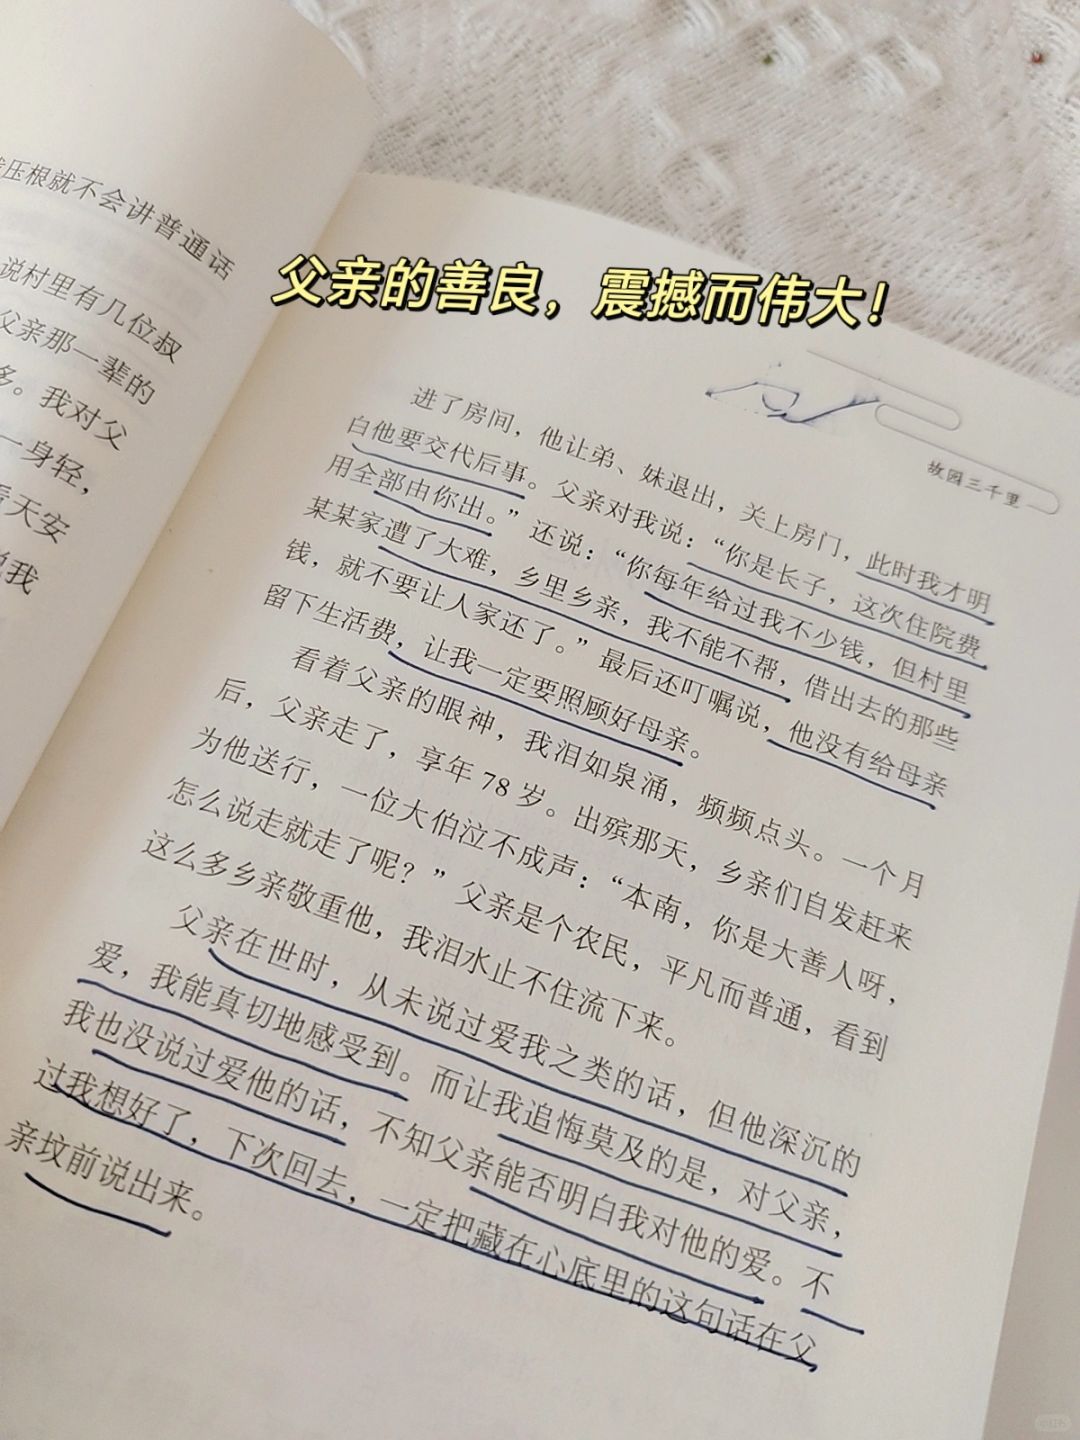 压根就不会讲普通话
说村里有几位叔
父亲那一辈的
多。我对父
一身轻，
看天安
说我
父亲的善良，震撼而伟大！
故园三千里
进了房间，他让弟、妹退出，关上房门，此时我才明
白他要交代后事。父亲对我说：“你是长子，这次住院费
用全部由你出。”还说：“你每年给过我不少钱，但村里
某某家遭了大难，乡里乡亲，我不能不帮，借出去的那些
钱，就不要让人家还了。”最后还叮嘱说，他没有给母亲
留下生活费，让我一定要照顾好母亲。
看着父亲的眼神，我泪如泉涌，频频点头。一个月
后，父亲走了，享年78岁。出殡那天，乡亲们自发赶来
为他送行，一位大伯泣不成声：“本南，你是大善人呀，
怎么说走就走了呢？”父亲是个农民，平凡而普通，看到
这么多乡亲敬重他，我泪水止不住流下来。
父亲在世时，从未说过爱我之类的话，但他深沉的
爱，我能真切地感受到。而让我追悔莫及的是，对父亲，
我也没说过爱他的话，不知父亲能否明白我对他的爱。不
过我想好了，下次回去，一定把藏在心底里的这句话在父
亲坟前说出来。